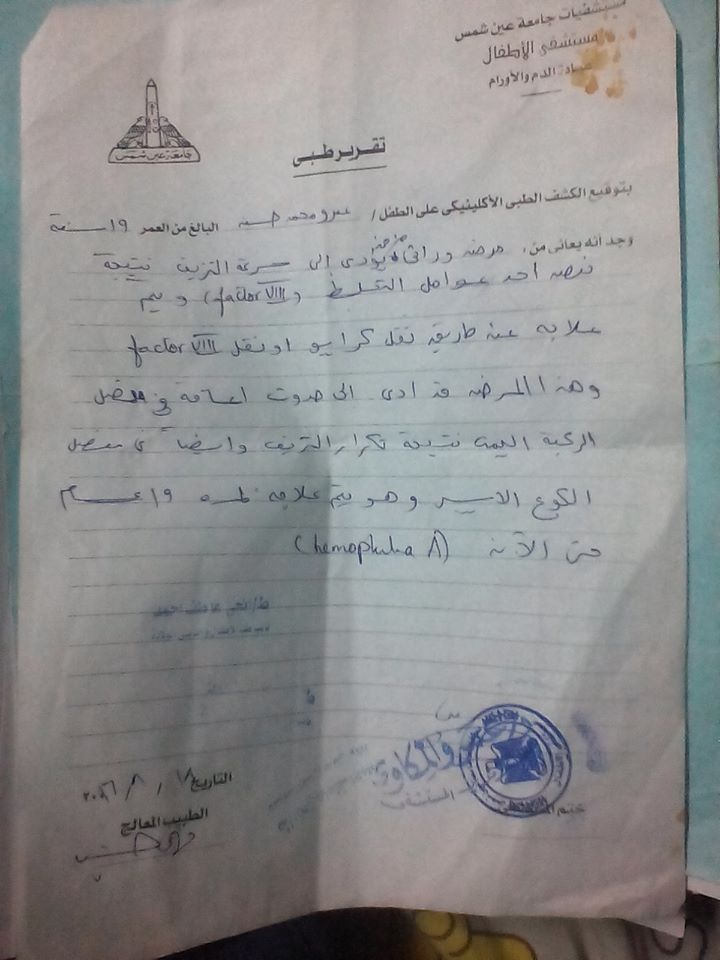 مستشفيات جامعة عين شمس
مستشفى الأطفال
عيادة الدم والأورام
جامعة عين شمس
تقرير طبى
بتوقيع الكشف الطبى الأكلينيكى على الطفل / عمرو محمد حسن البالغ من العمر ١٩ سنة
وجد انه يعانى من، مرض وراثى مزمن يؤدى الى سرعة النزيف نتيجة
نقص احد عوامل التجلط (factor VIII) ويتم
علاجه عن طريق نقل كرايو او نقل factor VIII
وهذا المرض قد ادى الى حدوث اعاقة فى مفصل
الركبة اليمنى نتيجة تكرار النزيف وايضاً فى مفصل
الكوع الايسر وهو يتم علاجه لمدة ١٩ عام
حتى الآن (hemophilia A)
التاريخ
الطبيب المعالج
المستشفى
ختم